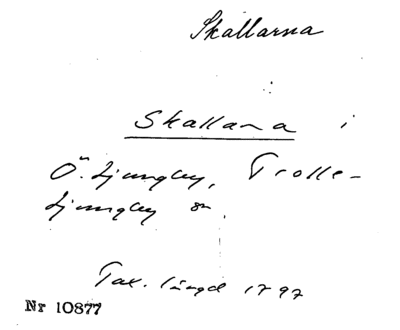 Skallarna
Skallana i
Ö. Ljungby, Trolle-
Ljungby sn
Tax. längd 1797
Nr 10877